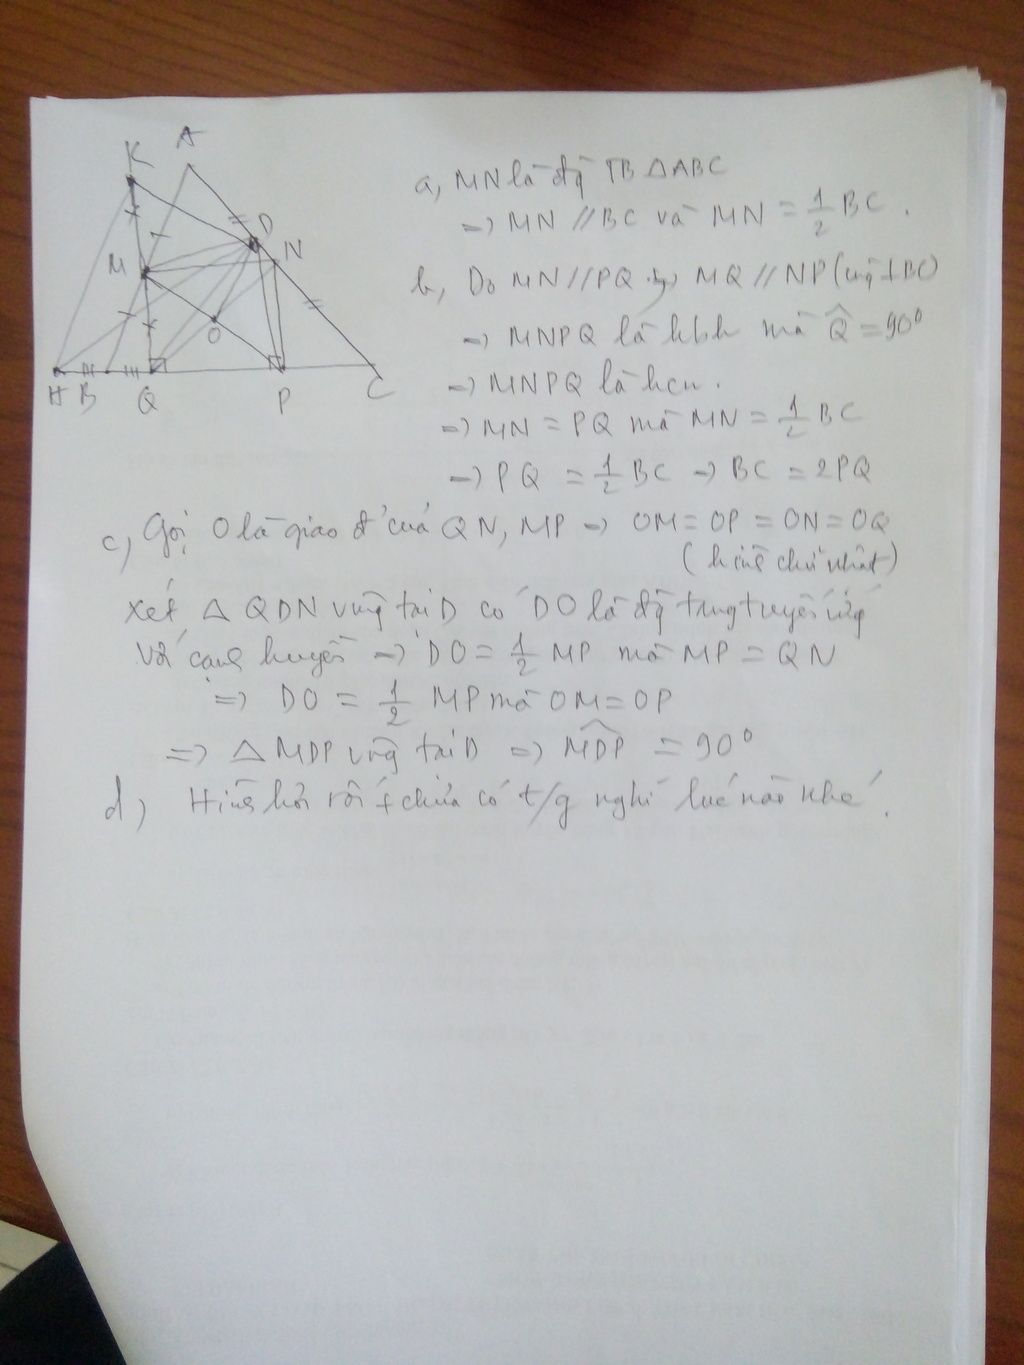 K A
D
M N
O
H B Q P C
a, MN là đg TB △ABC
=> MN // BC và MN = 1/2 BC.
b, Do MN // PQ MQ // NP (cùg ⊥ BC)
=> MNPQ là hbh mà Q̂ = 90°
=> MNPQ là hcn.
=> MN = PQ mà MN = 1/2 BC
=> PQ = 1/2 BC => BC = 2PQ
c, Gọi O là giao đ' của QN, MP => OM = OP = ON = OQ
(hình chữ nhật)
Xét △ QDN vuôg tại D có DO là đg trug tuyến ứng
với cạnh huyền => DO = 1/2 MP mà MP = QN
=> DO = 1/2 MP mà OM = OP
=> △ MDP vuôg tại D => MDP = 90°
d) Hình hơi rối chưa có t/g nghĩ lúc nào nhé.